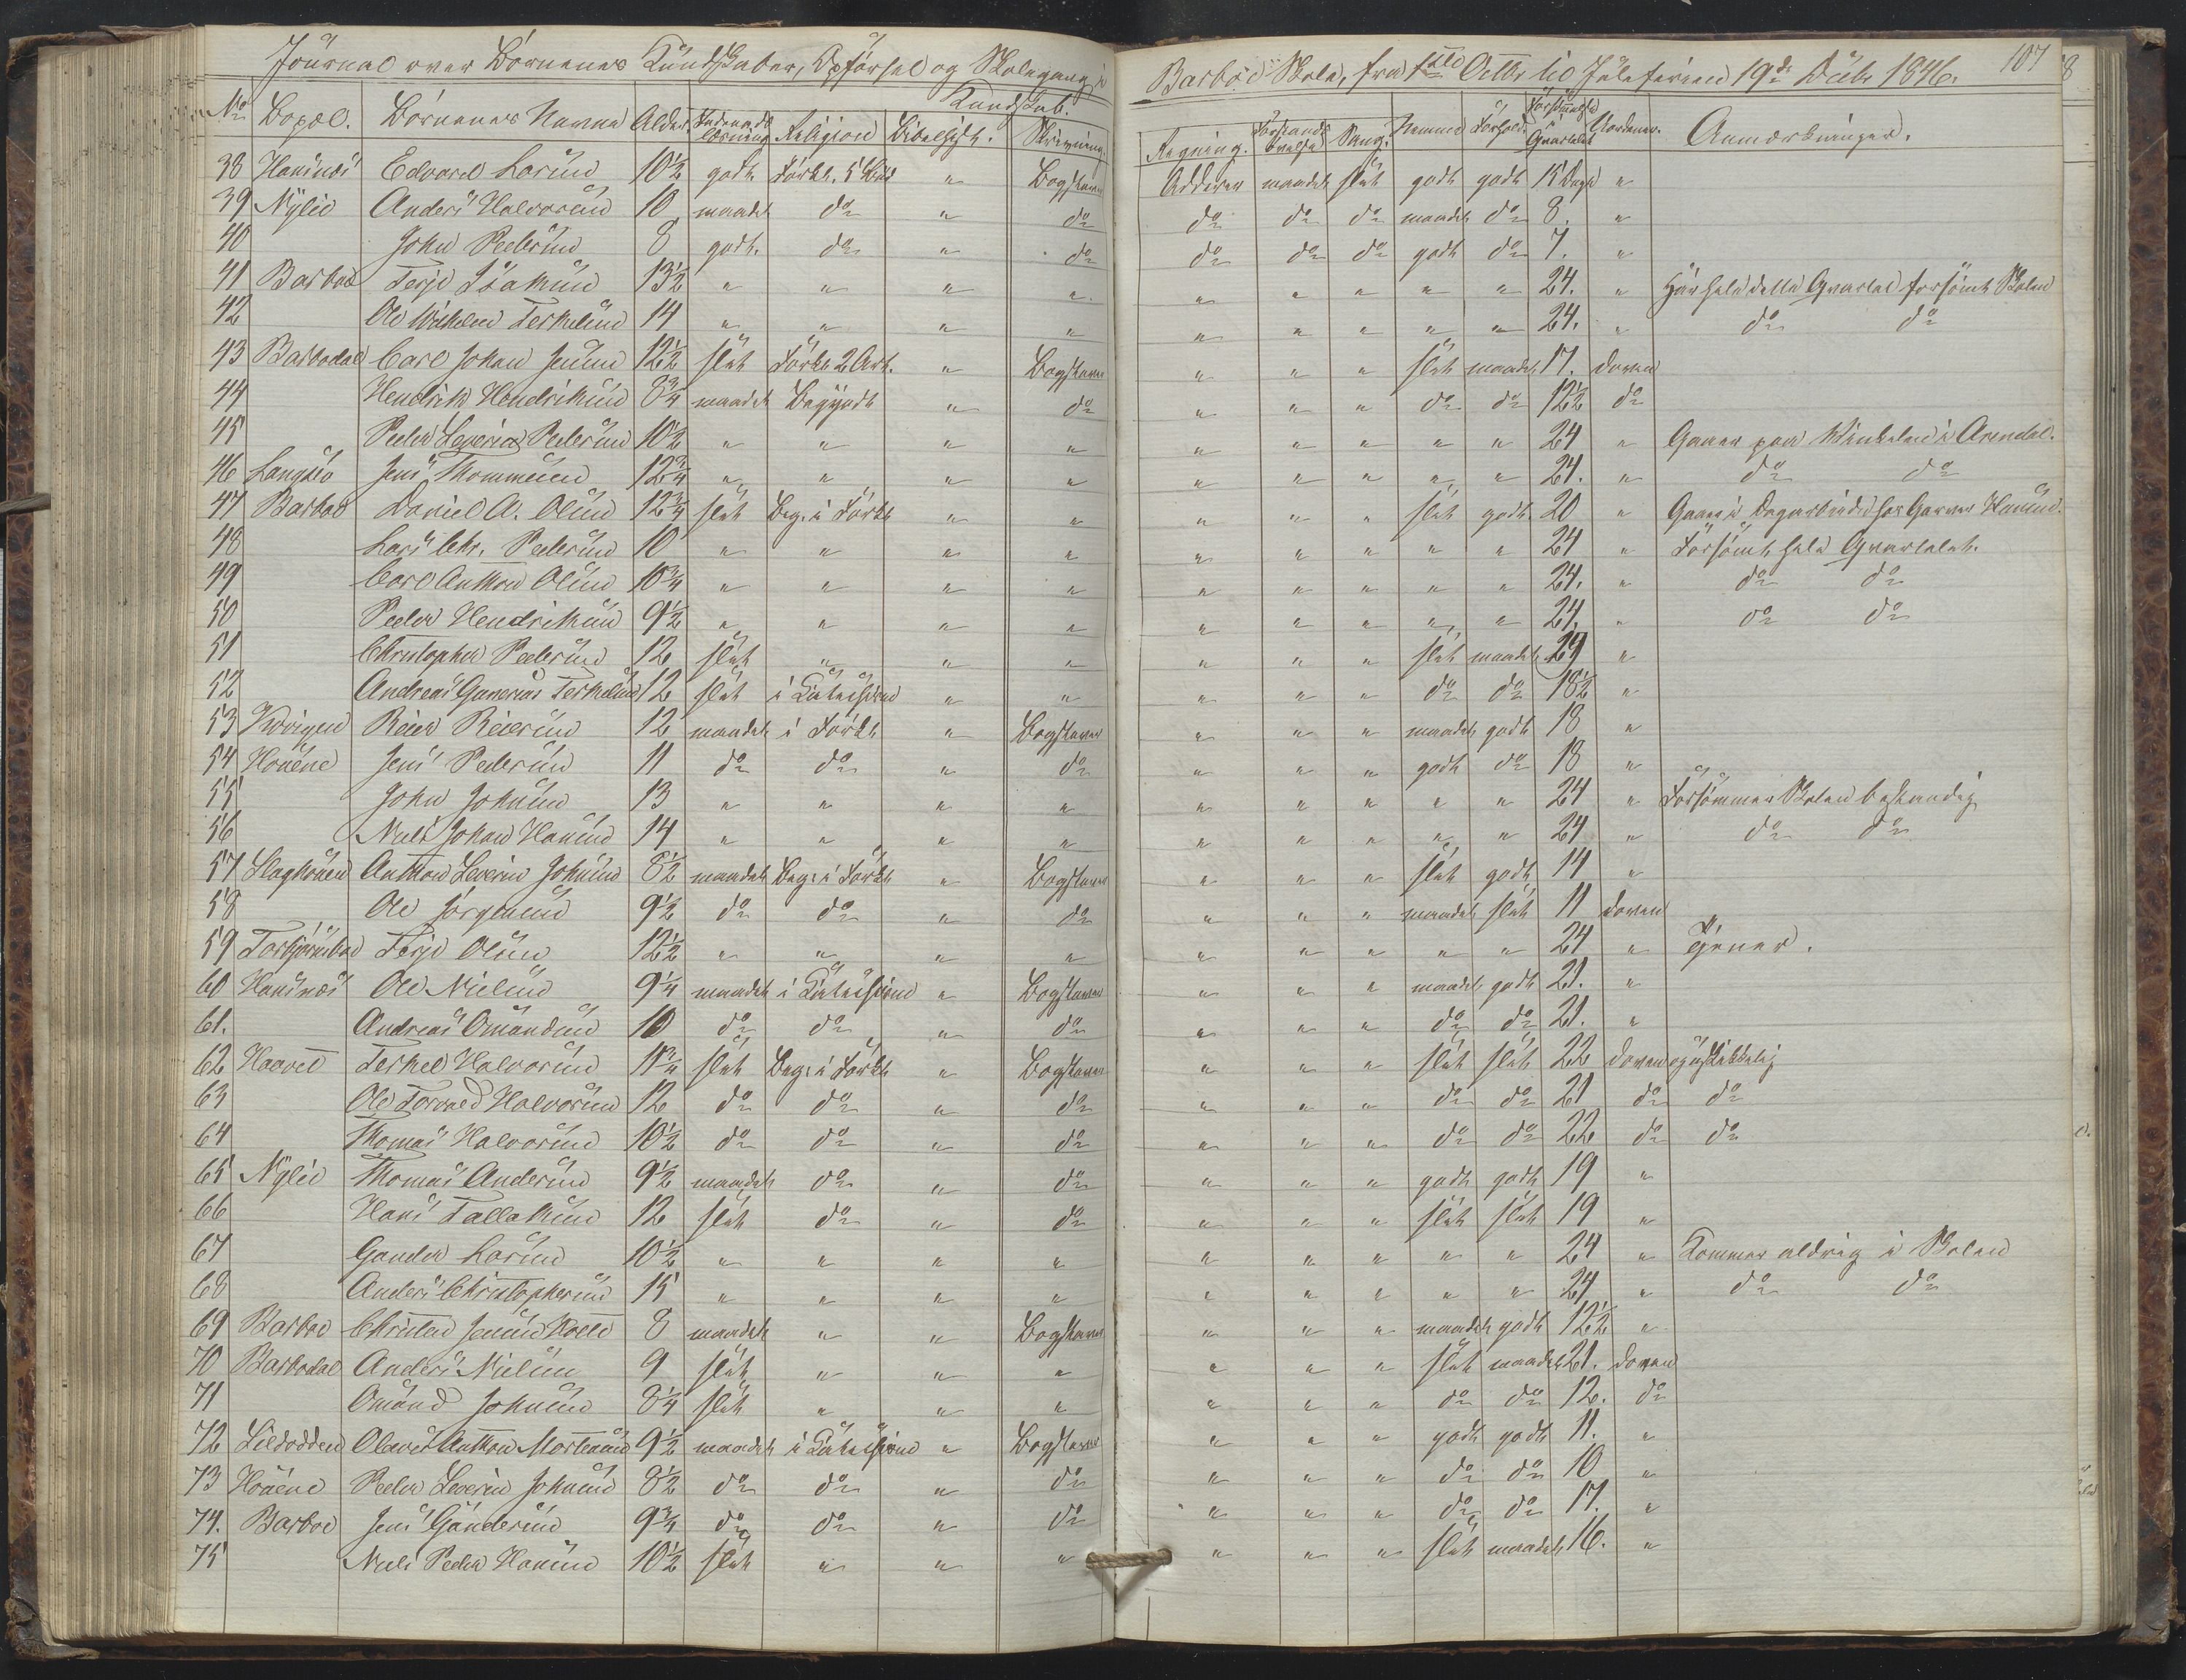 Journal over Børnenes Kundskaber, Opførsel og Skolegang i Barboe Skole, fra 1ste Octbr til Juleferien 19de Decbr 1846. 107
Kundskab.
No Bopæl. Børnenes Navne Alder. Indenadslæsning Religion Bibelhist. Skrivning. Regning. Forstandsøvelse Sang. Nemme Forhold Forsømte i Qvartalet Anmærkninger.
38 Hansnæs Edvard Larsen 10½ godt. Forkl. 5 " Bogstaver Adderer maadel. slet godt godt 15 Dage "
39 Nylie Anders Halvorsen 10 maadel do " do do do do maadel. do 8. "
40 John Pedersen 8 godt. do " do do do do godt do 7. "
41 Barboe Terje Isaksen 13½ " " " " " " " " " 24. " Har hele dette Qvartal forsømt Skolen
42 Ole Wilhelm Terkelsen 14 " " " " " " " " " 24. " do do
43 Barbodal Carl Johan Jensen 12½ slet Forkl. 2 Art. " Bogstaver " " " slet maadel. 17. doven
44 Hendrik Hendriksen 8¾ maadel. Begyndt " do " " " do do 12½ do
45 Peder Severin Pedersen 10½ " " " " " " " " " 24 " Gaaer paa Winkelen i Arendal.
46 Langsæ Jens Thommesen 12¾ " " " " " " " " " 24. " do do
47 Barboe Daniel A. Olsen 12¾ slet Beg. i Forkl. " " " " " slet godt. 20 " Gaaer i Dagarbeide hos Garver Hansen.
48 Lars Chr. Pedersen 10 " " " " " " " " " 24 " Forsømt hele Qvartalet.
49 Carl Anthon Olsen 10¾ " " " " " " " " " 24. " do do
50 Peder Hendriksen 9½ " " " " " " " " " 24. " do do
51 Christopher Pedersen 12 slet " " " " " " slet maadel. 29 "
52 Andreas Gunerius Terkelsen 12 slet i Katechism " " " " " do do 18½ "
53 Reier Reiersen 12 maadel. i Forkl. " Bogstaver " " " maadel. godt 18 "
54 Jens Pedersen 11 do do " do " " " godt do 18 "
55 John Johnsen 13 " " " " " " " " " 24 " Forsømmer Skolen bestandig
56 Niels Johan Hansen 14 " " " " " " " " " 24 " do do
57 Anthon Severin Johnsen 8½ maadel. Beg. i Forkl. " Bogstaver " " " slet godt 14 "
58 Ole Jørgensen 9½ do do " do " " " maadel. slet 11 doven
59 Torbjørnsboe Terje Olsen 12½ " " " " " " " " " 24 " Tjener.
60 Hansnæs Ole Nielsen 9¼ maadel. i Katechism " Bogstaver " " " maadel. godt 21. "
61. Andreas Omundsen 10 do do " do " " " do do 21. "
62 Haaved Terkel Halvorsen 11¾ slet Beg. i Forkl. " Bogstaver " " " slet slet 22 doven og uskikkelig
63 Ole Torvald Halvorsen 12 do do " do " " " do do 21 do do
64 Thomas Halvorsen 10½ do do " do " " " do do 22 do do
65 Nylie Thomas Andersen 9½ maadel. do " do " " " godt godt 19 "
66 Hans Tallaksen 12 slet do " do " " " slet slet 19 "
67 Gunder Larsen 10½ " " " " " " " " " 24 " Kommer aldrig i Skolen
68 Anders Christophersen 15 " " " " " " " " " 24 " do do
69 Barboe Christen Jensen 8 maadel. " " Bogstaver " " " maadel. godt 12½ "
70 Barbodal Anders Nielsen 9 slet " " " " " " slet maadel. 21. doven
71 Omund Johnsen 8¼ slet " " " " " " do do 12. do
72 Olaves Anthon Mortensen 9½ maadel. i Katechism " Bogstaver " " " godt godt 11. "
73 Peder Severin Johnsen 8½ do do " do " " " do do 10 "
74. Barboe Jens Gundersen 9¾ do do " do " " " do do 17. "
75 Niels Peder Hansen 10½ slet " " " " " " slet maadel. 16. "